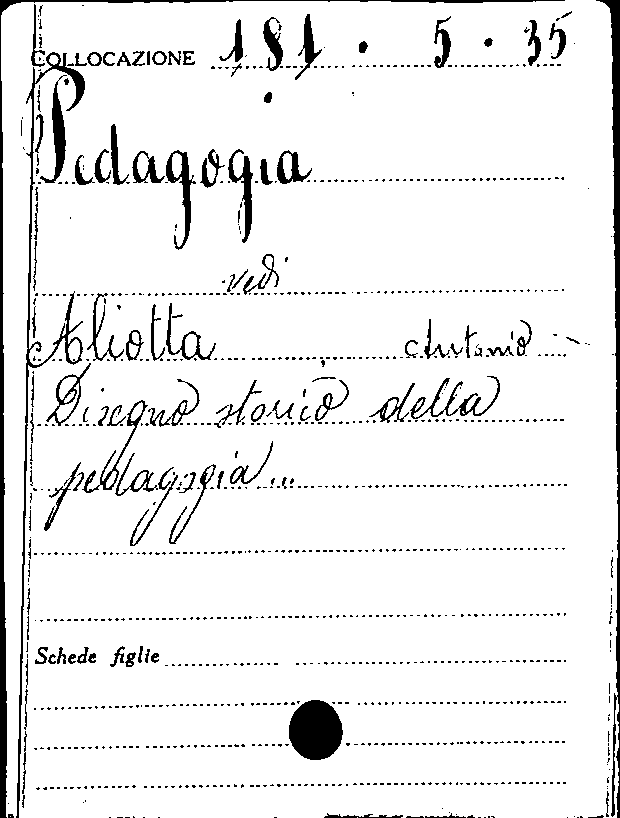 COLLOCAZIONE 181 · 5 · 35
Pedagogia
vedi
Aliotta, Antonio
Disegno storico della
pedagogia...
Schede figlie